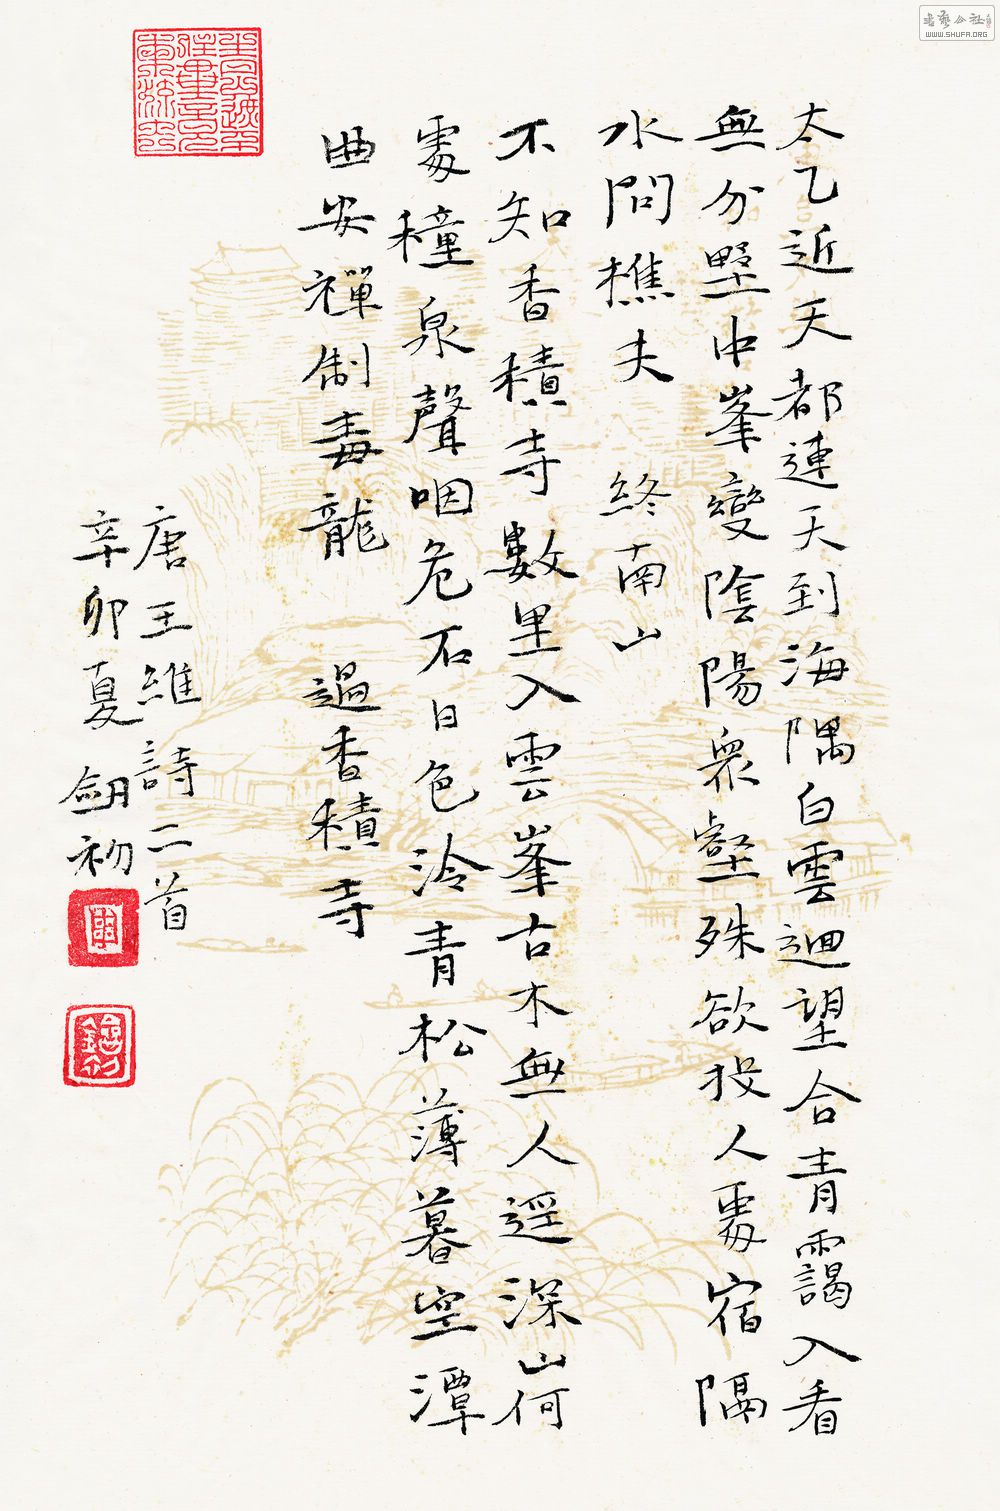 太乙近天都連天到海隅白雲迴望合青靄入看
無分墅中峯變陰陽衆壑殊欲投人處宿隔
水問樵夫 終南山
不知香積寺數里入雲峯古木無人逕深山何
處穜泉聲咽危石日色泠青松薄暮空潭
曲安禪制毒龍 過香積寺
唐王維詩二首
辛卯夏 劒初
书艺公社
WWW.SHUFA.ORG